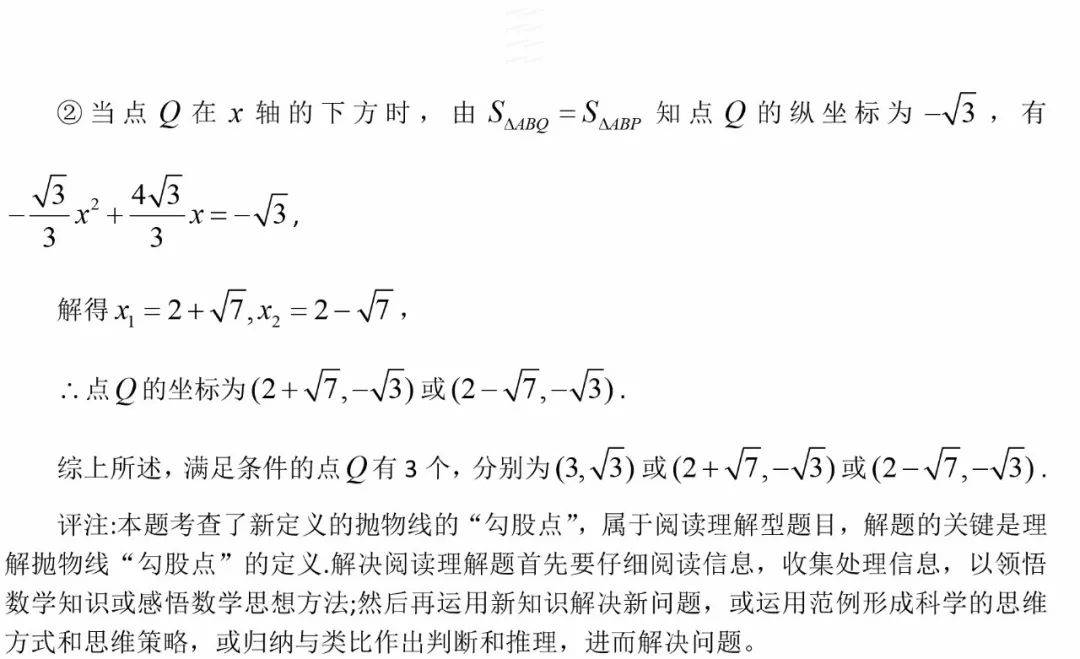 ②当点 Q 在 x 轴的下方时，由 S△ABQ = S△ABP 知点 Q 的纵坐标为 −√3，有
−(√3/3)x² + (4√3/3)x = −√3,
解得 x₁ = 2 + √7, x₂ = 2 − √7，
∴点 Q 的坐标为 (2 + √7, −√3) 或 (2 − √7, −√3) .
综上所述，满足条件的点 Q 有 3 个，分别为 (3, √3) 或 (2 + √7, −√3) 或 (2 − √7, −√3) .
评注:本题考查了新定义的抛物线的“勾股点”，属于阅读理解型题目，解题的关键是理
解抛物线“勾股点”的定义.解决阅读理解题首先要仔细阅读信息，收集处理信息，以领悟
数学知识或感悟数学思想方法;然后再运用新知识解决新问题，或运用范例形成科学的思维
方式和思维策略，或归纳与类比作出判断和推理，进而解决问题。